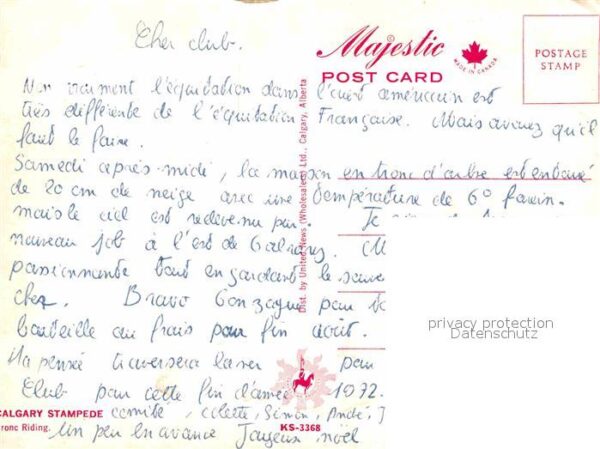 Cher club.
Majestic
MADE IN CANADA
POST CARD
POSTAGE STAMP
Non vraiment l'équitation dans l'ouest américain est
très différente de l'équitation Française. Mais avouez qu'il
faut le faire.
Samedi après-midi, la maison en tronc d'arbre est entouré
de 20 cm de neige avec une température de 6° faren.
mais le ciel est redevenu pur. Je
nouveau job à l'est de Calgary.
passionnante tout en gardant le
chez. Bravo Gonzague pour
bouteille au frais pour fin août.
Ma pensée traversera la mer pour
Club pour cette fin d'année 1972.
comité, Colette, Simon, André, J
Un peu en avance Joyeux noël
Dist. by United News (Wholesalers) Ltd., Calgary, Alberta
CALGARY STAMPEDE
ronc Riding.
KS-3368
privacy protection
Datenschutz